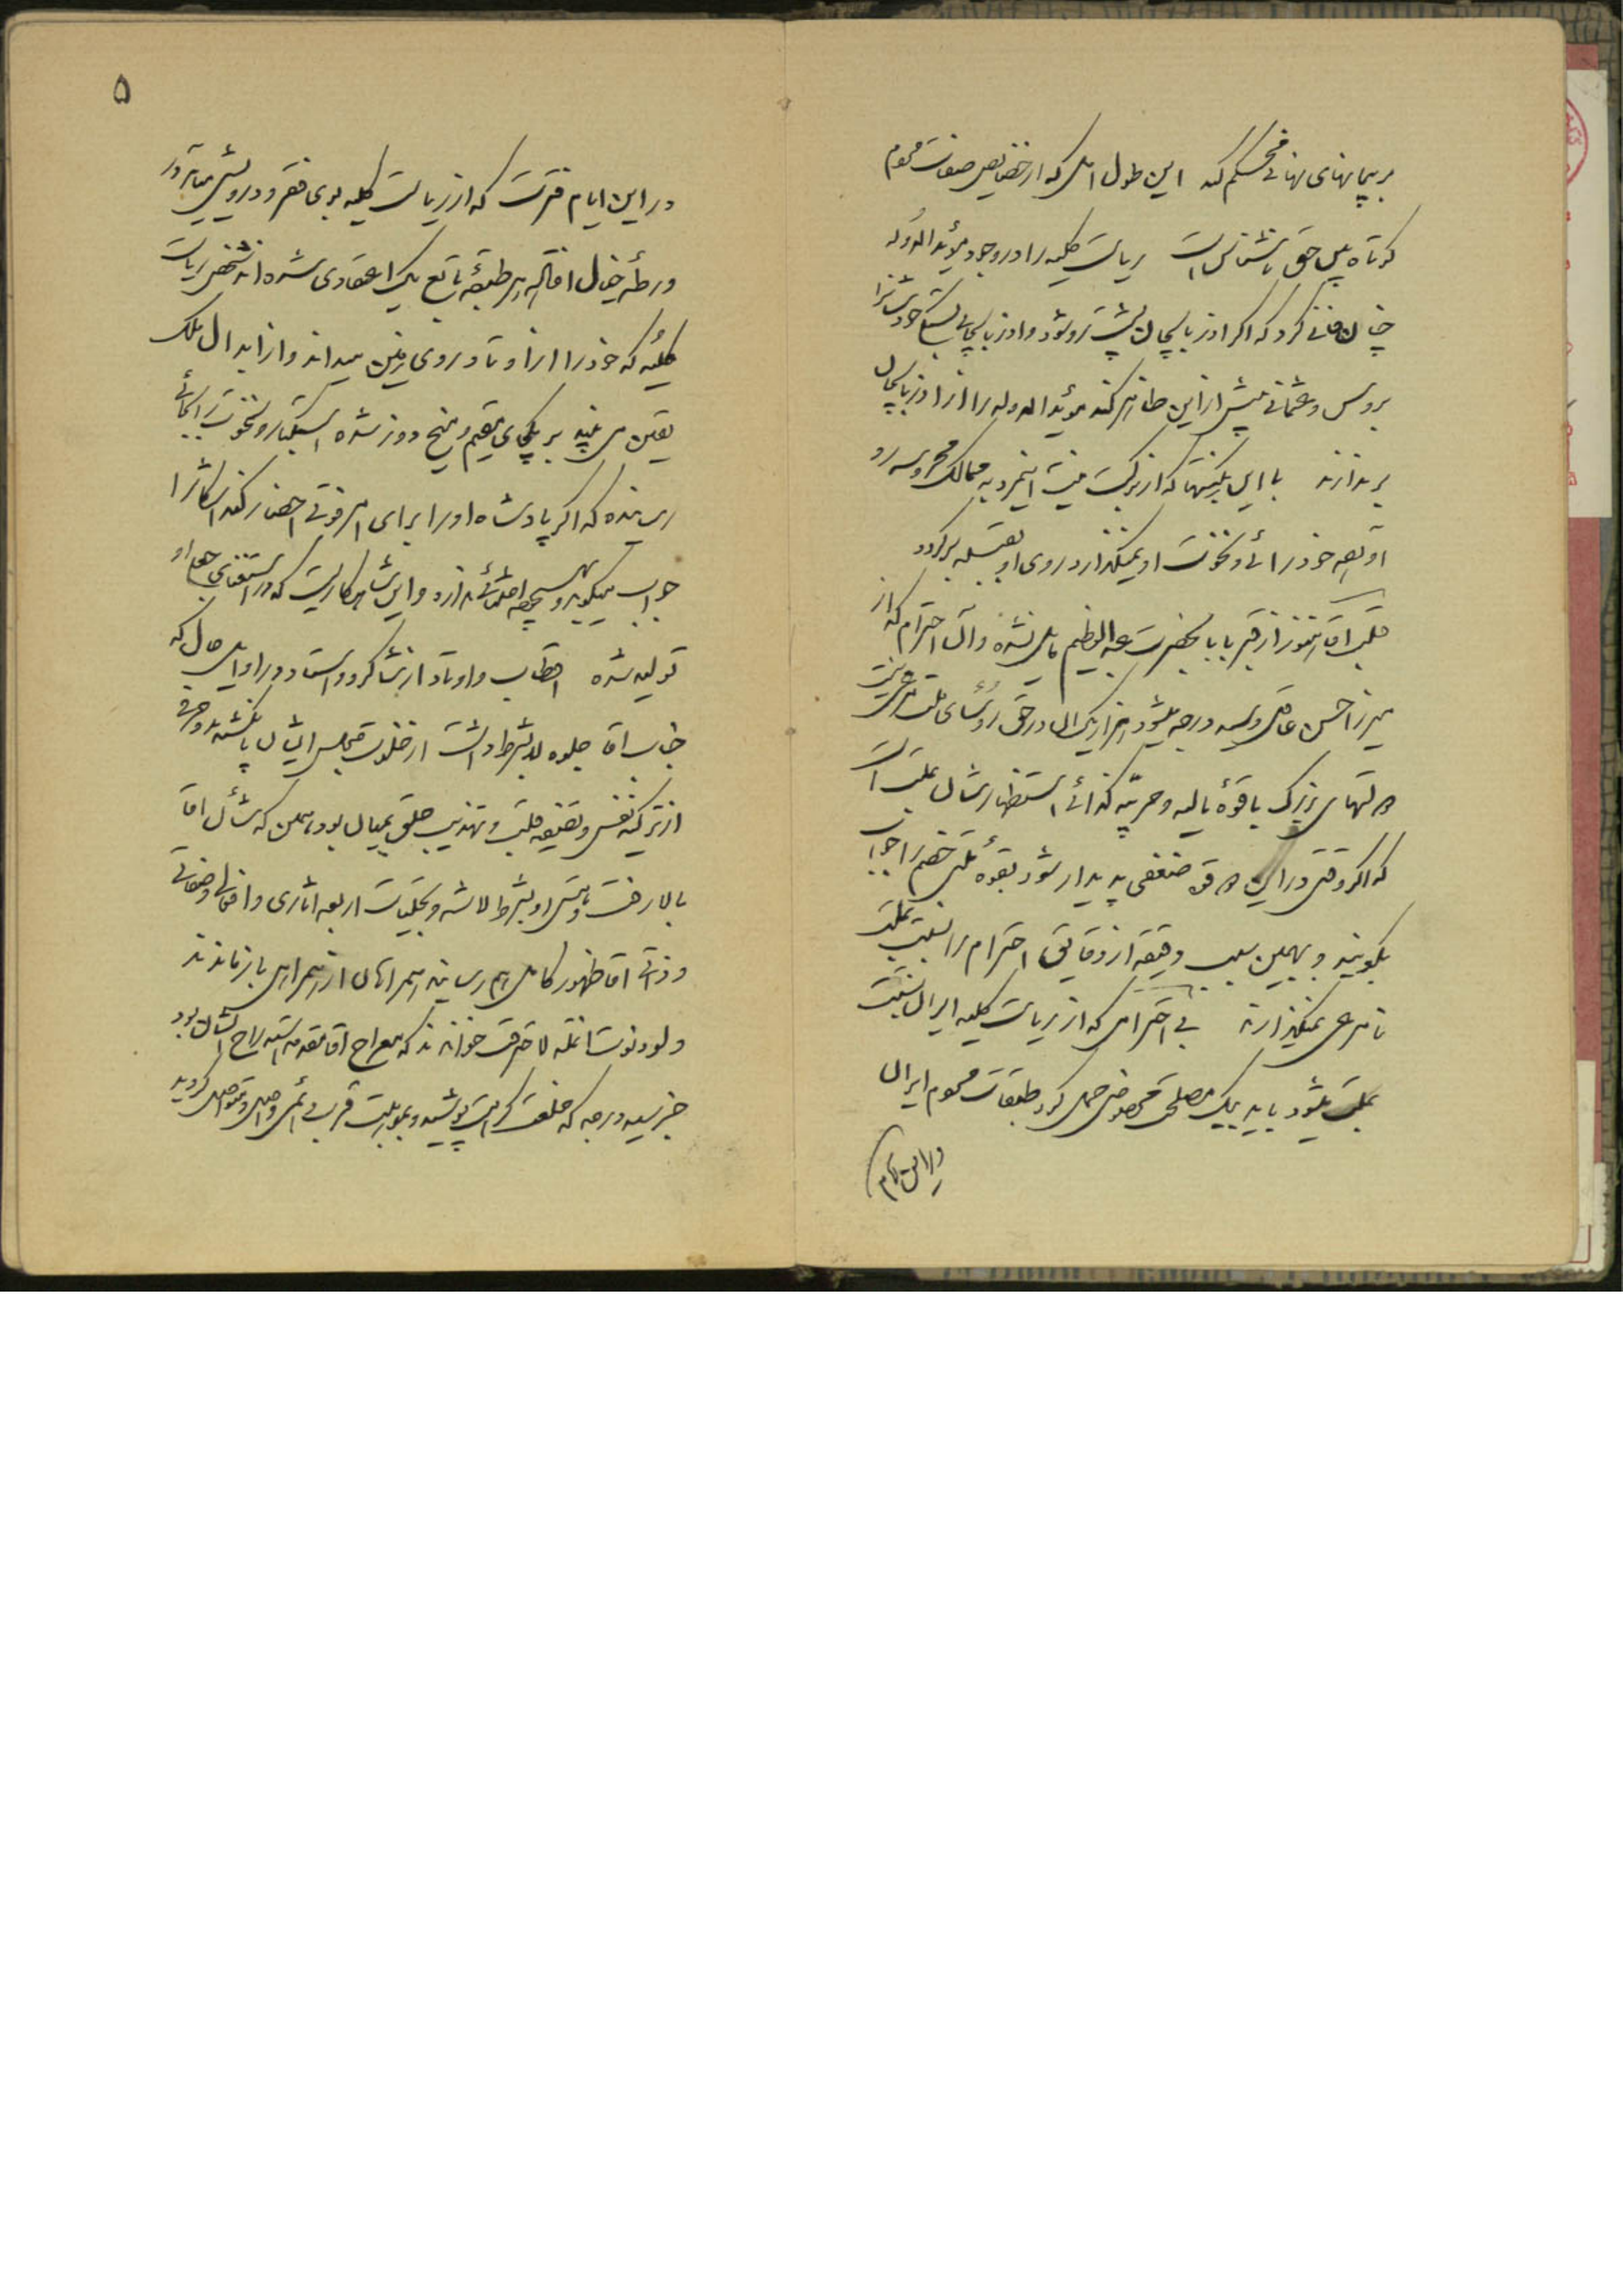 بر پیمانهای نهانی محکم کند این طول امل که از خصایص صفات مردم
کوتاه بین حق ناشناس است ریاست کلیه را در وجود مؤید الدوله
چنان فانی کرد که اگر اذربایجان پیشتر و شود و اذربایجانی بستگی خودشانرا
بروس و عثمانی پیش از این ظاهر کند مؤید الدوله را از اذربایجان
براندازند با این که از ترکیب هیئت به ممالک محروسه رو
او بعد خود رائی و نخوت او نمیگذارد روی او بقبله برگردد
قلب اقا هنوز از قبر بابا بحضرت عبدالعظیم مایل نشده و آن احترام که از
میرزا حسن عاقل و بسه درجه میشود هزار یک ان در حق رؤسای ملت مرعی نیست
دولتهای بزرگ با قوهٔ مالیه و حربیّه کذائی استظهارشان بملت است
که اگر وقتی در این دو قوه ضعفی پدیدار شود بقوهٔ ملی خصم را جواب
بگویند و بهمین سبب دقیقه از دقایق احترام را نسبت بملت
نامرعی نمیگذارند بی احترامی که از ریاست کلیه ایران نسبت
بملت میشود باید بیک مصلحت مخصوص حمل کرد طبقات مردم ایران
در این ایام
۵
در این ایام فترت که از ریاست کلیه بوی فقر و درویشی میاید در
ورطهٔ خیال افتاده هر طبقهٔ تابع یک اعتقادی شده اند شخص ریاست
کلیّه که خود را از اوتاد روی زمین میداند و از ابدال ملک
یقین می بیند بر یکجای مقیم و میخ دوز شده استکبار و نخوت را بجائی
رسانده که اگر پادشاه او را برای امر فوتی احضار کند اشکارا
جواب میگوید و بهیچوجه اعتنائی ندارد و این شاهکاریست که در استغنای جاه او
تولید شده اقطاب و اوتاد از شاگرد و استاد در اوایل حال که
جناب اقا جلوه لابشرط داشت از خلوت و مجلس ایشان پاکشیده و حرفی
از تزکیه نفس و تصفیه قلب و تهذیب خلق بمیان بود همین که شأن اقا
بالا رفت و ناموس او بشرط لا شد و تجلیات اربعه اثاری و افعالی و صفاتی
و ذاتی اقا ظهور کامل بهم رسانید همراهان از همراهی باز ماندند
و لو دنوت انملة لاحترقت خواندند که معراج اقا مقدمه استدراج ایشان بود
خبر رسید درجه که خلعت کرامت پوشیده و بموهبت قرب